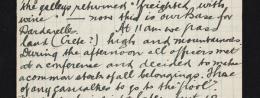 the galleys returned "freighted with
wine" — now this is our Base for
Dardanelles. At 11 am we pass
land (Crete?) high and mountainous
During the afternoon all officers met
at a conference and decided to make
a common stock of all belongings, those
of any casualties to go to the "pool".